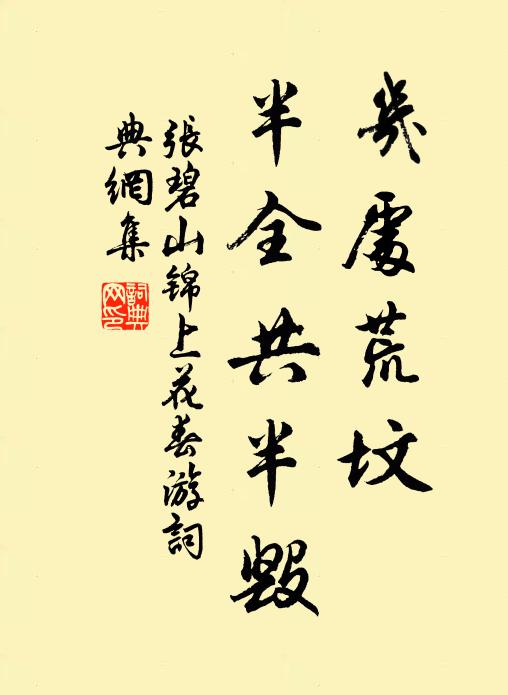 幾處荒墳
半全共半毀
張碧山錦上花春游詞
典網集
詞典网印